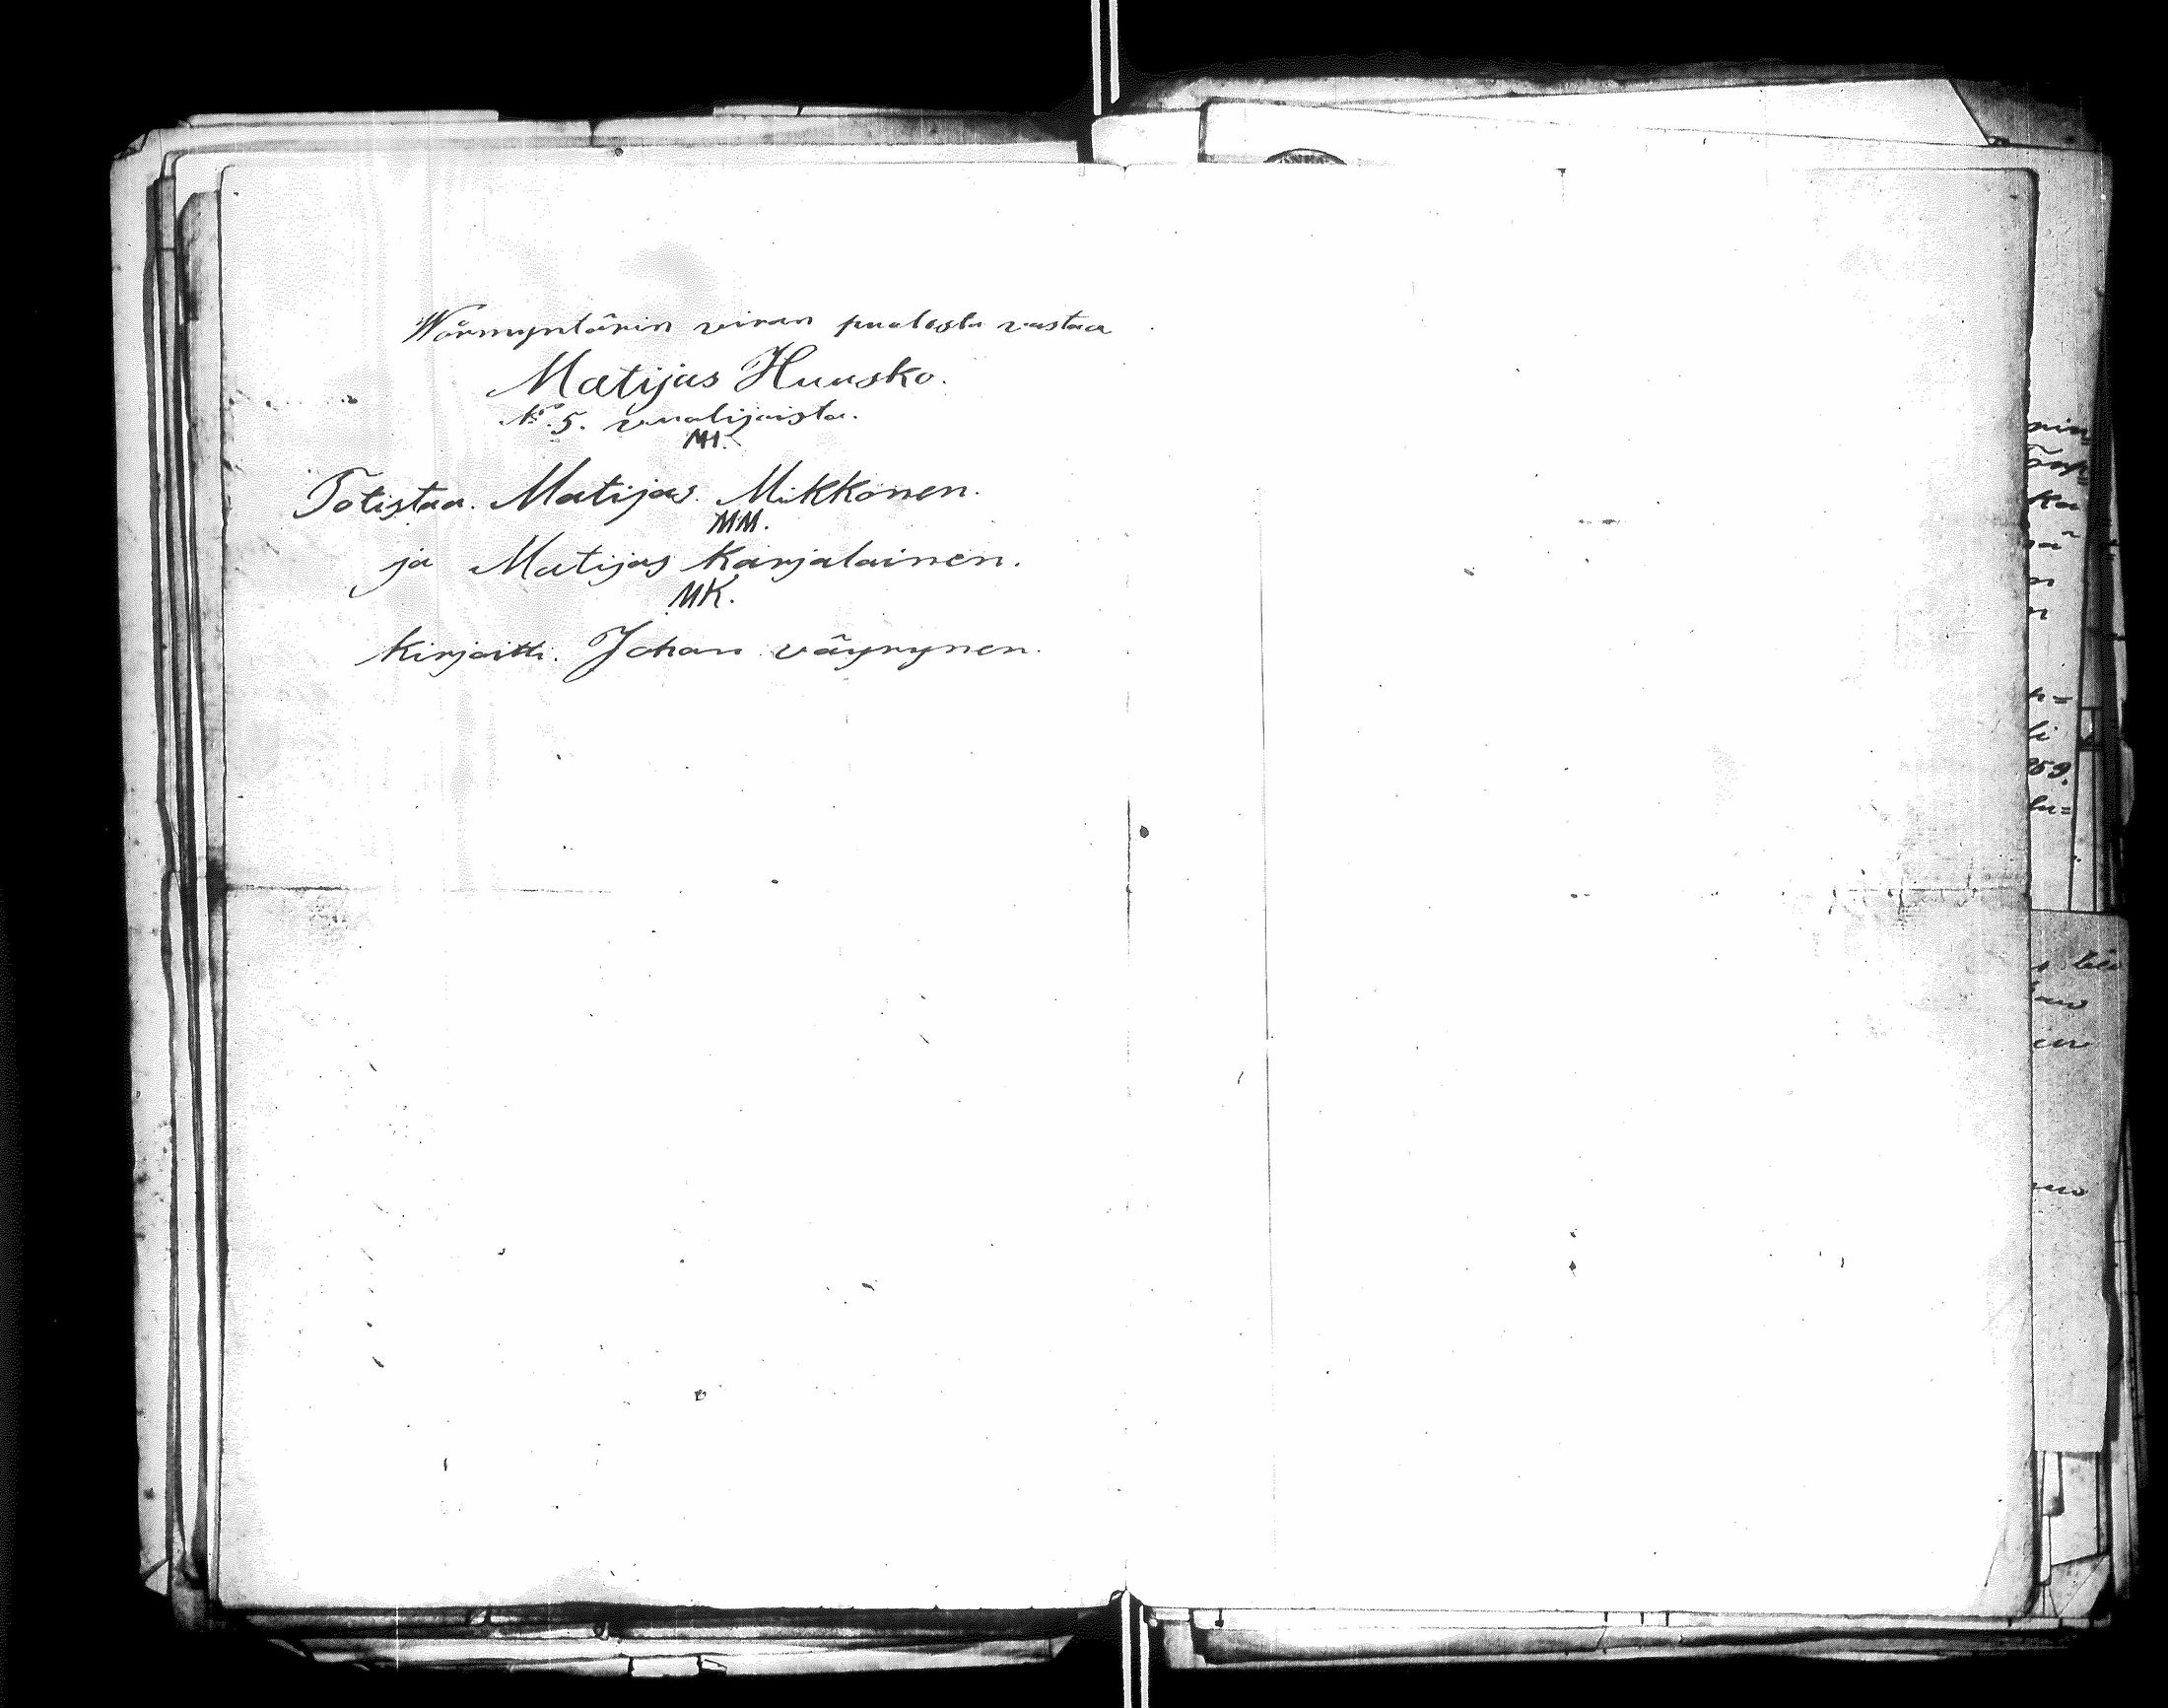 Wårmyntärin viran puolesta vastaa
Matijas Huusko.
No 5. vuolijoista.
MH.
Totistaa. Matijas. Mikkonen.
MM.
ja Matijas Karjalainen.
MK.
Kirjoitti. Johan väyrynen.